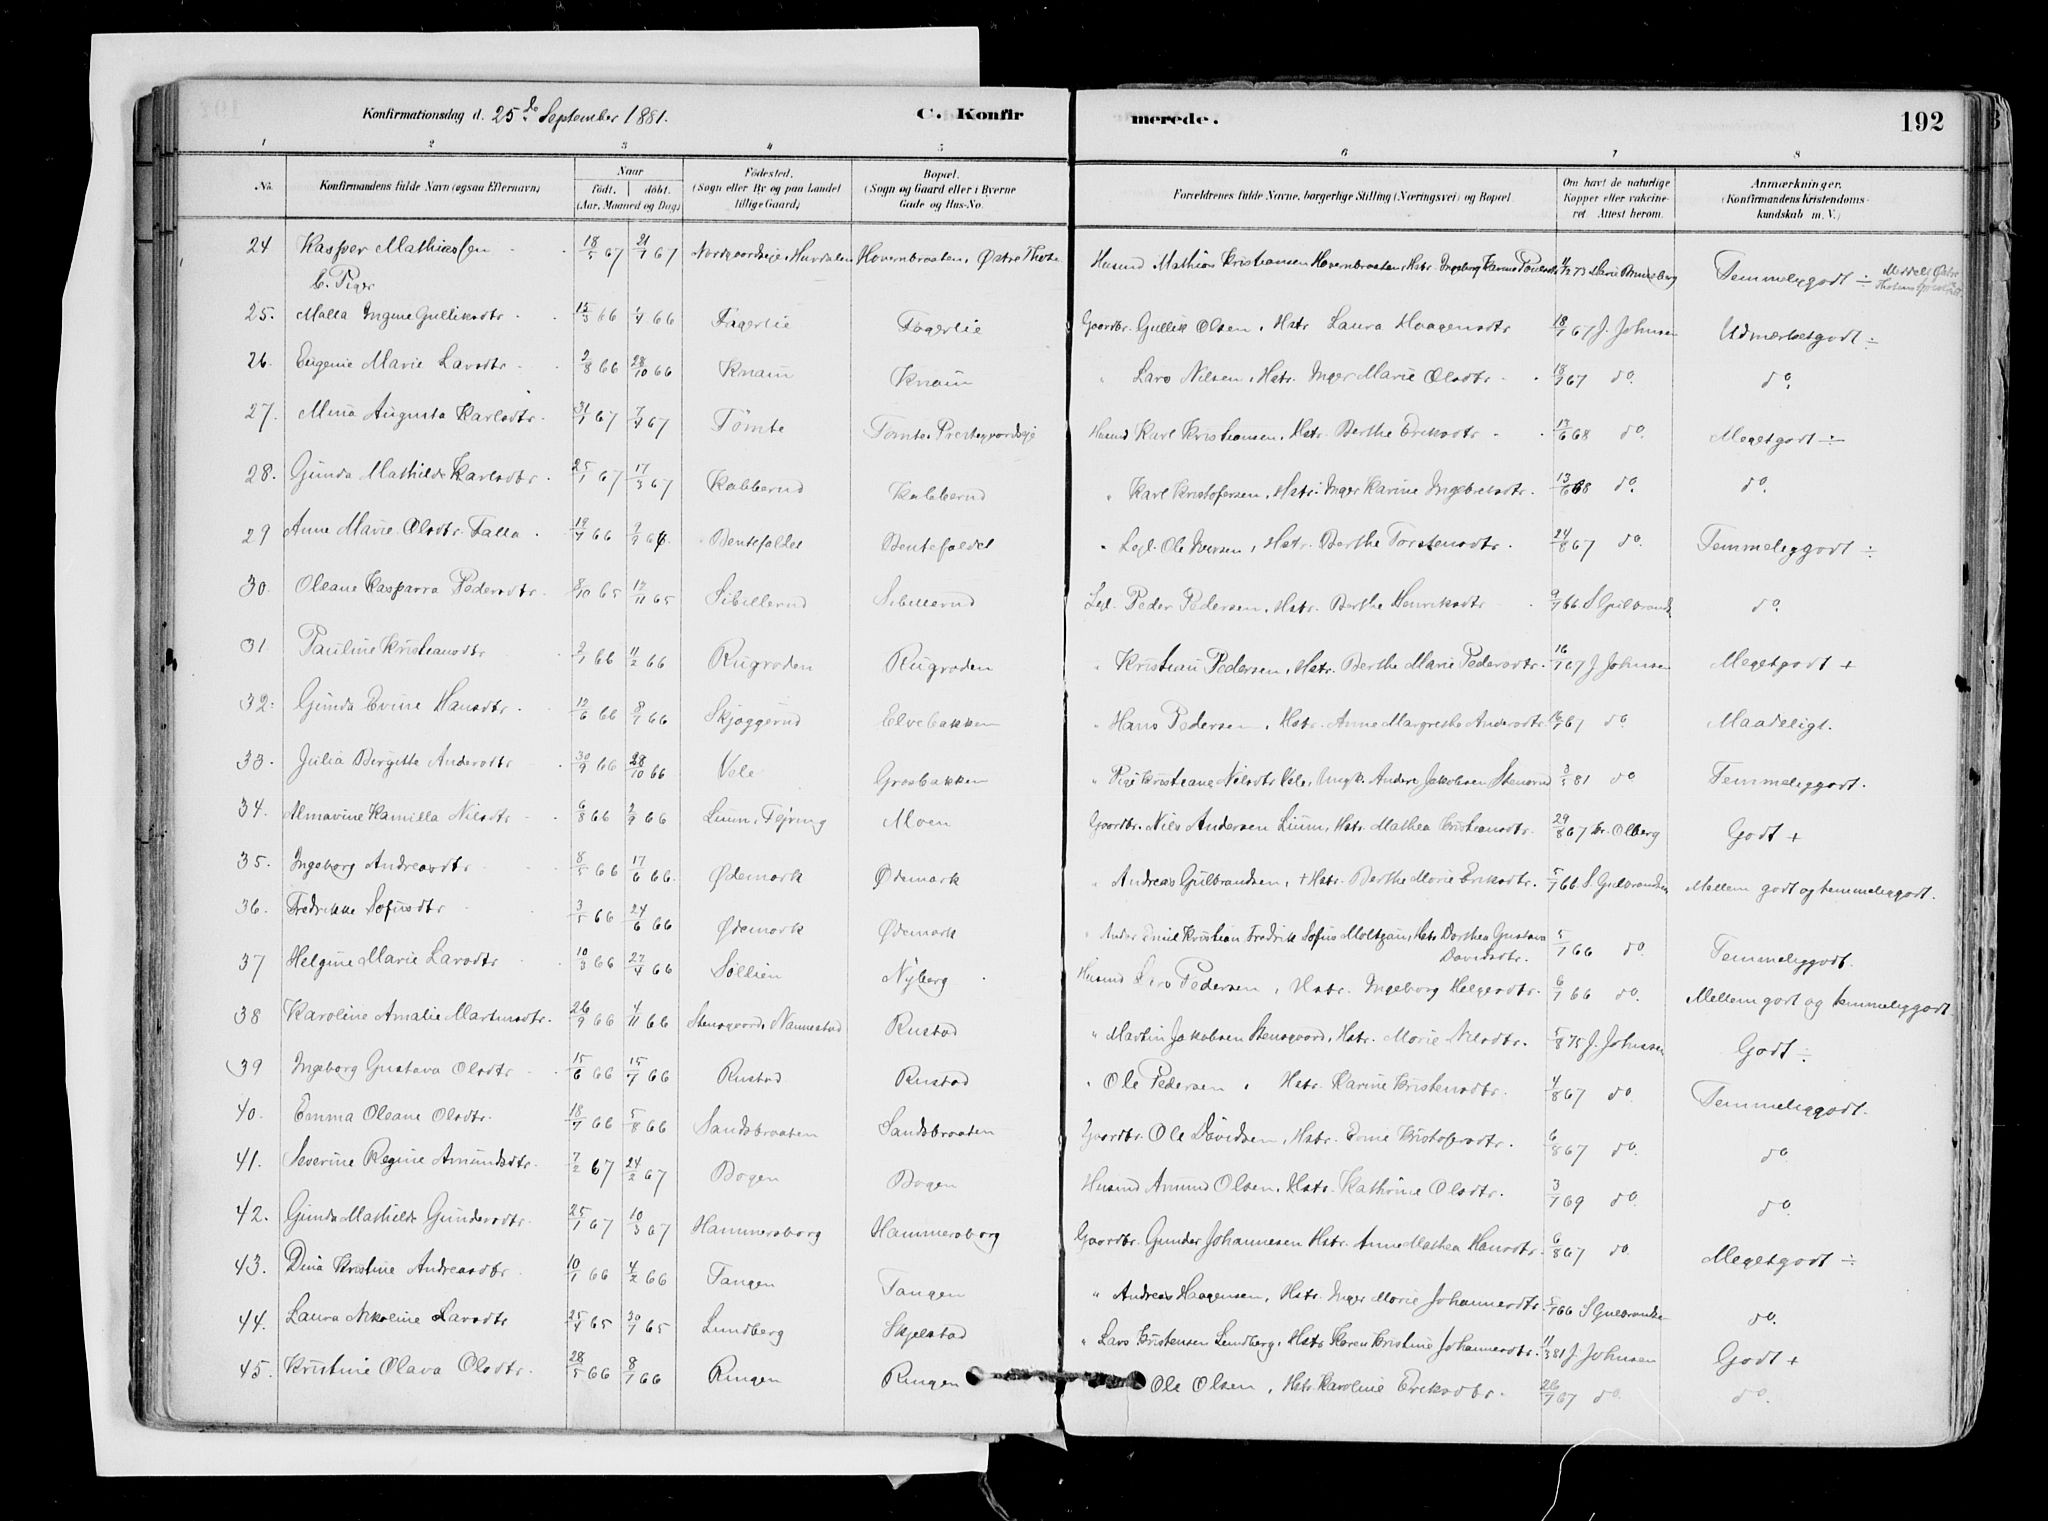 Konfirmationsdag d. 25de September 1881. C. Konfirmerede. 192
1 2 3 4 5 6 7 8
No. Konfirmandens fulde Navn (ogsaa Efternavn) Naar födt. döbt. (Aar, Maaned og Dag) Födested. (Sogn eller By og paa Landet tillige Gaard) Bopæl. (Sogn og Gaard eller i Byerne Gade og Hus-No. Forældrenes fulde Navne, borgerlige Stilling (Næringsvei) og Bopæl. Om havt de naturlige Kopper eller vaccineret. Attest herom. Anmærkninger. (Konfirmandens Kristendomskundskab m. V.)
24 Kasper Mathiassen 18/5 67 21/7 67 Hurdalen Hovernbraaten, Østre Thoten Husmd Mathias Kristiansen Hovernbraaten, Hstr. Ingeborg Karine Paulsdtr 11/2 73 Temmeliggodt ÷
b. Piger
25. Malla Ingine Gulliksdtr 15/3 66 2/4 66 Fagerlie Fagerlie Gaardbr. Gullik Olsen, Hstr. Laura Haagensdtr 18/7 67 J. Johnsen Udmærketgodt ÷
26. Eugenie Marie Larsdtr 2/8 66 28/10 66 Knain Knain " Lars Nilsen, Hstr. Inger Marie Olsdtr 18/7 67 do. do.
27. Mina Augusta Karlsdtr. 31/1 67 7/4 67 Tømte Tømte, Prestegaardseje Husmd Karl Kristiansen, Hstr. Berthe Eriksdtr 13/6 68 do. Megetgodt ÷
28. Gunda Mathilde Karlsdtr. 25/1 67 17/3 67 Kabberud Kabberud " Karl Kristofersen, Hstr. Inger Karine Ingebretsdtr. 13/6 68 do. do.
29 Anne Marie Olsdtr. Falla 19/7 66 Bentefaldet Bentefaldet " Lejl. Ole Iversen, Hstr. Berthe Torstensdtr. 24/8 67 do. Temmeliggodt ÷
30. Oleane Kasparra Pedersdtr. 8/10 65 12/11 65 Sibillerud Sibillerud Lejl. Peder Pedersen, Hstr. Berthe Henriksdtr 9/7 66 S. Gulbrands do.
31 Pauline Kristiansdtr 2/1 66 11/2 66 Rugraden Rugraden " Kristian Pedersen, Hstr. Berthe Marie Pedersdtr. 16/7 67 J. Johnsen Megetgodt +
32. Gunda Evine Hansdtr. 12/6 66 8/7 66 Skjaggerud Elvebakken " Hans Pedersen, Hstr. Anne Margrethe Andersdtr 16/7 67 do Maadeligt.
33. Julia Bergitte Andersdtr 30/9 66 28/10 66 Vele Grosbakken " Pige Kristiane Nilsdtr Vele, Ungk. Anders Jakobsen Stensrud 3/5 81 do Temmeliggodt.
34. Almavine Kamilla Nilsdtr 6/8 66 2/9 66 Lium, Fejring Moen Gaardbr. Nils Andersen Lium, Hstr. Mathea Kristiansdtr. 29/8 67 Kr. Olberg Godt +
35. Ingeborg Andreasdtr 8/5 66 17/6 66. Ødemark Ødemark " Andreas Gulbrandsen, + Hstr. Berthe Marie Eriksdtr. 5/7 66 S. Gulbrandsen Mellem godt og temmeliggodt.
36. Fredrikke Sofusdtr 3/5 66 24/6 66 Ødemark Ødemark " Kristian Fredrik Sofus Moltzau, Hstr. Dorthea Gustava Davidsdtr. 5/7 66 do. Temmeliggodt.
37 Helgine Marie Larsdtr 10/3 66 27/4 66 Søllien Nyberg Husmd Lars Pedersen, Hstr. Ingeborg Helgesdtr. 6/7 66 do. Mellem godt og temmeliggodt
38 Karoline Amalie Martinsdtr. 26/9 66 4/11 66 Stensgaard, Nannestad Rustad " Martin Jakobsen Stensgaard, Hstr. Marie Nilsdtr. 5/8 75 J. Johnsen Godt ÷
39 Ingeborg Gustava Olsdtr 15/6 66 15/7 66 Rustad Rustad " Ole Pedersen, Hstr. Karine Kristensdtr. 4/8 67 do. Temmeliggodt.
40. Emma Oleane Olsdtr. 18/7 66 5/8 66 Sandsbraaten Sandsbraaten Gaardbr. Ole Davidsen, Hstr. Evine Kristofersdtr. 6/8 67 do. do
41. Severine Regine Amundsdtr. 7/2 67 24/2 67 Bogen Bogen Husmd Amund Olsen, Hstr. Kathrine Olsdtr. 3/7 69 do. do.
42. Gunda Mathilde Gundersdtr. 25/1 67 10/3 67 Hammersborg Hammersborg Gaardbr. Gunder Johannesen Hstr. Anne Mathea Hansdtr. 6/8 67 do. Megetgodt ÷
43. Dina Kristine Andreasdtr 10/1 66 4/2 66 Tangen Tangen " Andreas Haagensen, Hstr. Inger Marie Johannesdtr. 5/7 66 S. Gulbrandsen do.
44. Laura Nikoline Larsdtr 25/4 65 30/7 65 Lundberg Skjelstad " Lars Kristensen Lundberg, Hstr Karen Kristine Johannesdtr. 11/3 81 J. Johnsen Godt +
45. Kristine Olava Olsdtr. 28/5 66 8/7 66 Ringen Ringen Ole Olsen, Hstr. Karoline Eriksdtr. 26/7 67 do. do.